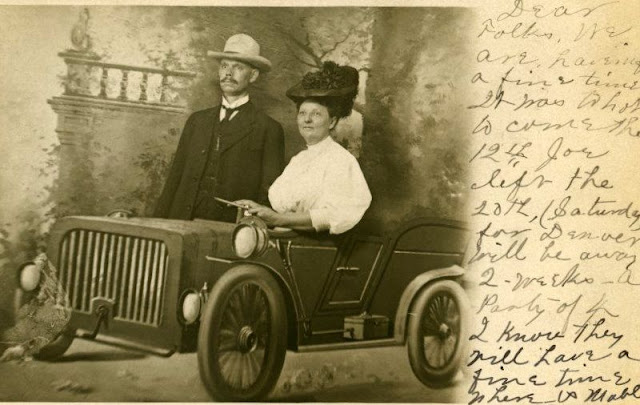 Dear
Folks, We
are having
a fine time
It was to hot
to come the
12th Joe
left the
20th, (Saturday
for Denver
will be away
2-weeks - a
Party of 4
I know they
will have a
fine time
where is Mabl